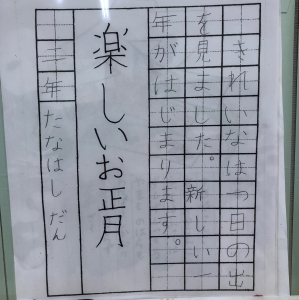 きれいなはつ日の出
を見ました。新しい一
年がはじまります。
楽しいお正月
二年 たなはし だん